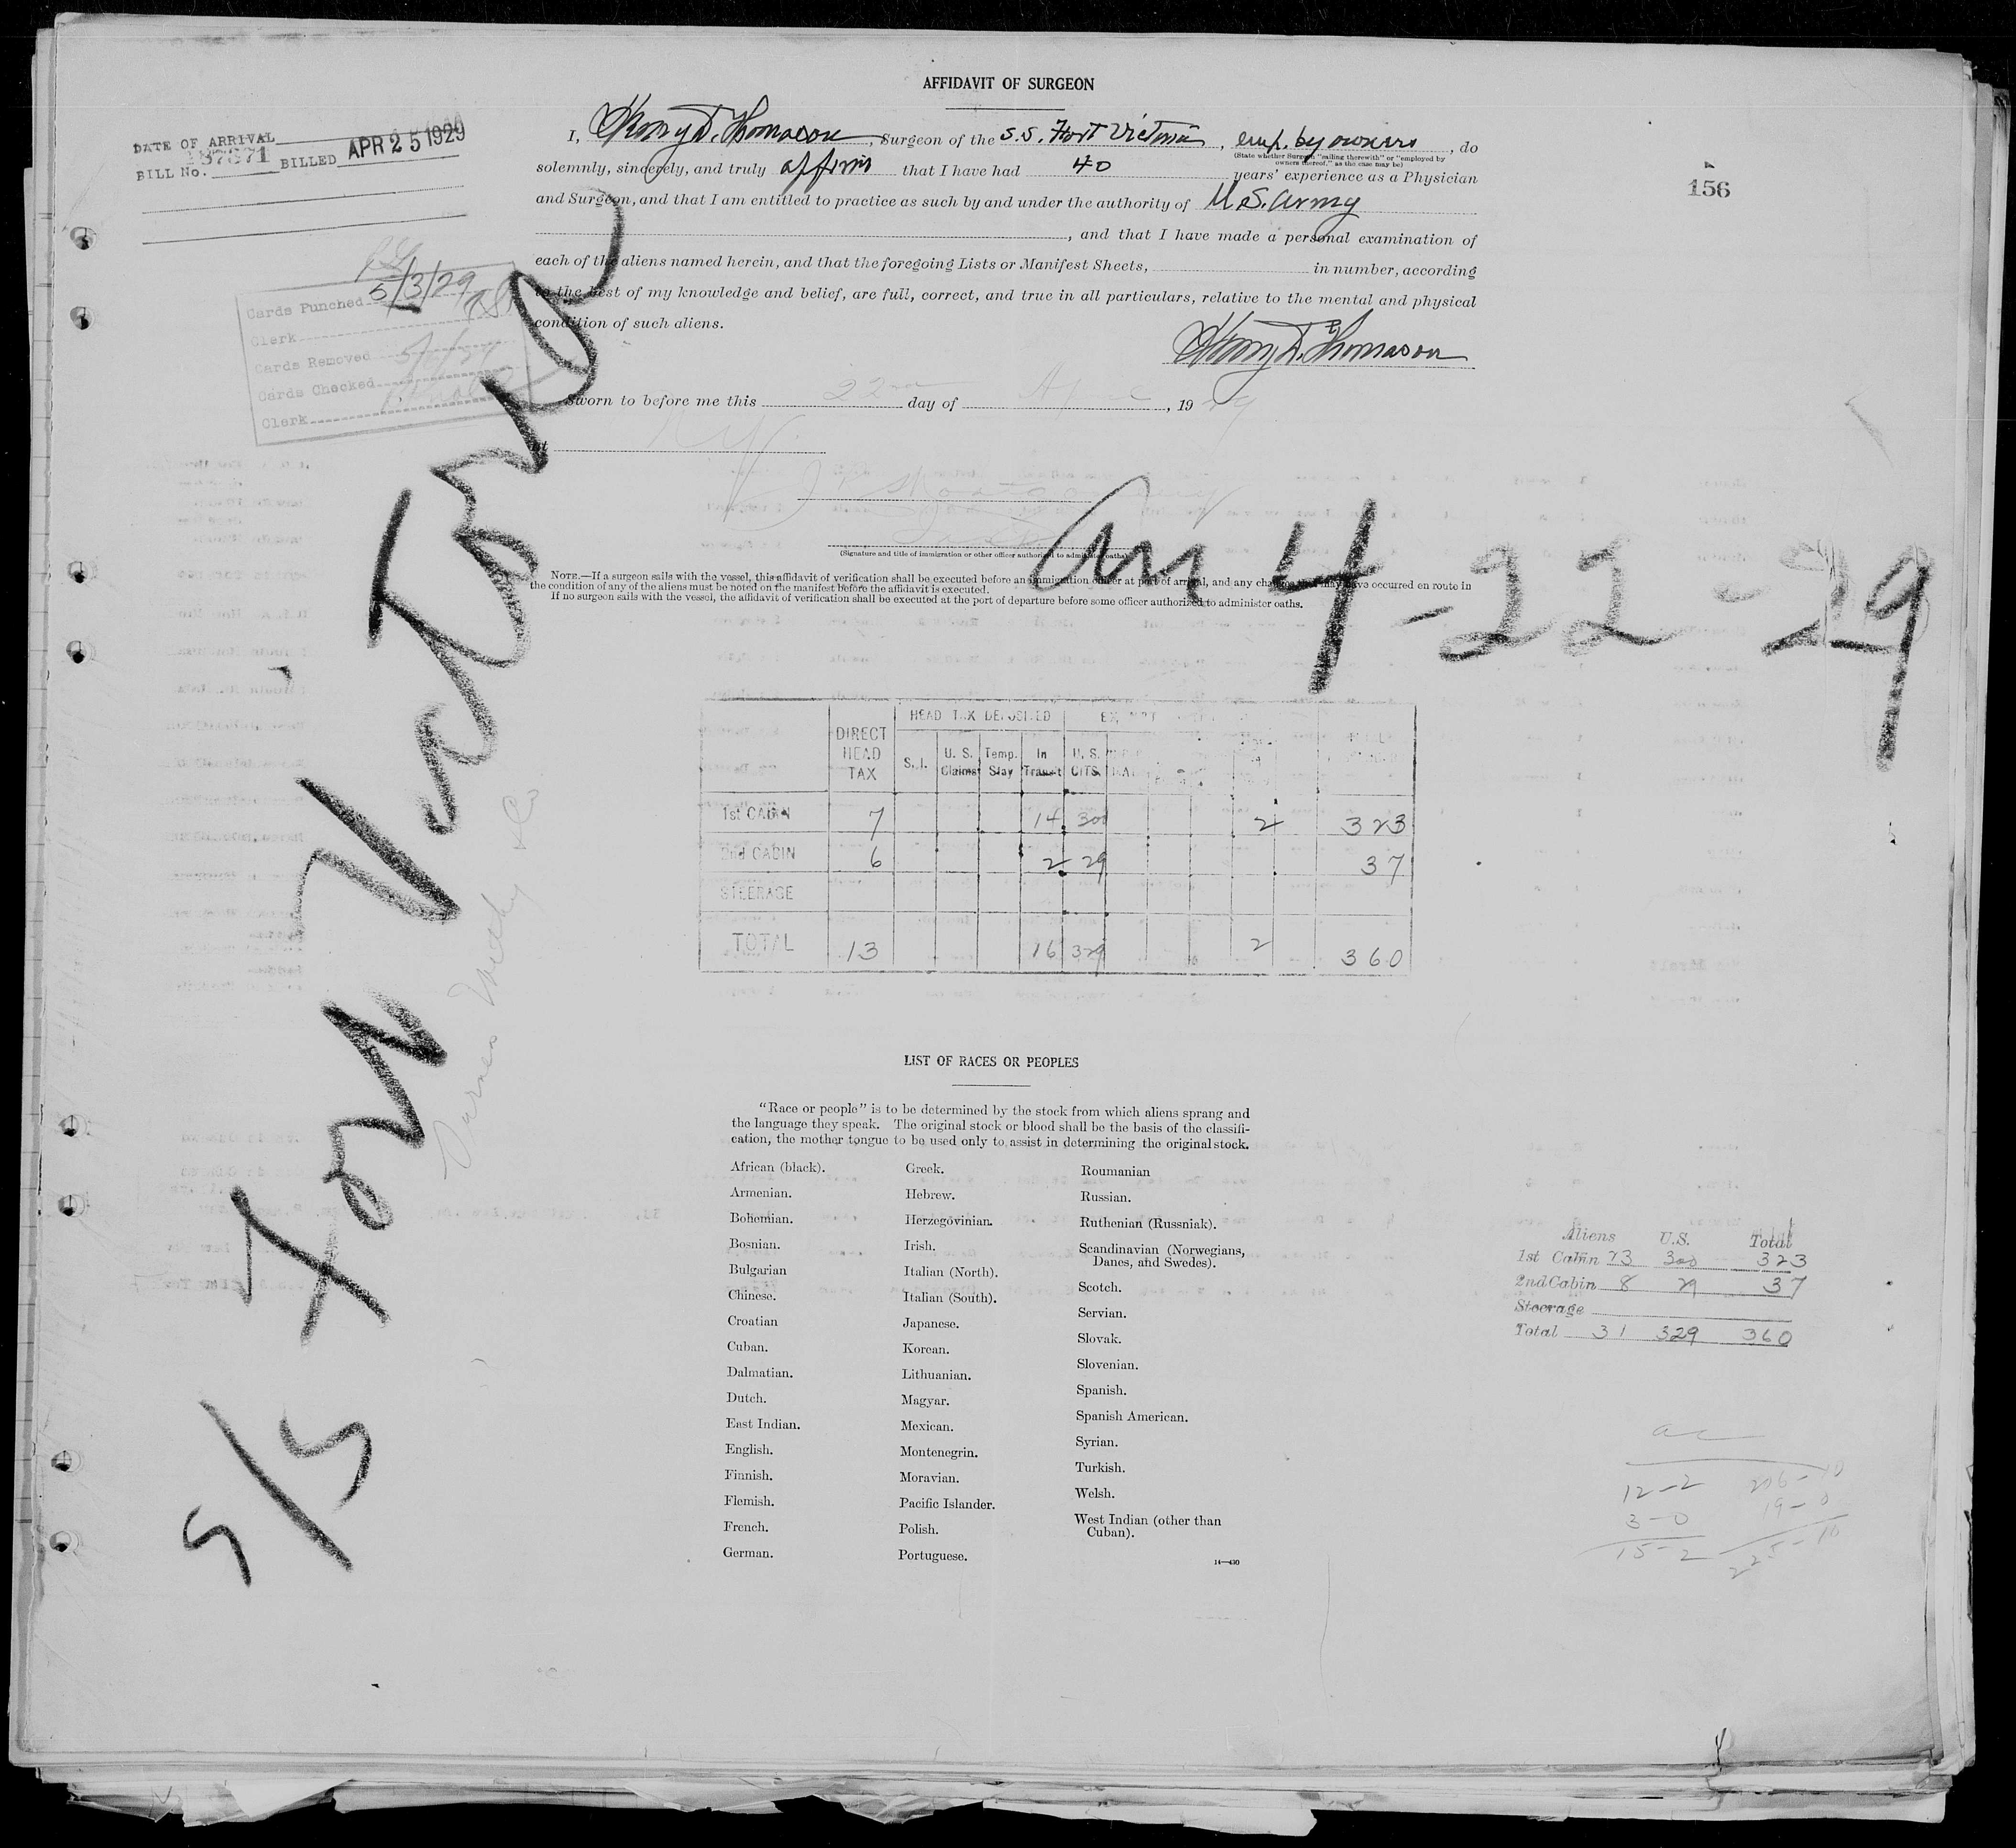 AFFIDAVIT OF SURGEON
DATE OF ARRIVAL
BILL No. 187671 BILLED APR 25 1929
156
I, Henry D. Thomason, Surgeon of the S.S. Fort Victoria, emp. by owners, do
(State whether Surgeon "sailing therewith" or "employed by
owners thereof," as the case may be)
solemnly, sincerely, and truly affirm that I have had 40 years' experience as a Physician
and Surgeon, and that I am entitled to practice as such by and under the authority of U.S. Army
, and that I have made a personal examination of
each of the aliens named herein, and that the foregoing Lists or Manifest Sheets, in number, according
to the best of my knowledge and belief, are full, correct, and true in all particulars, relative to the mental and physical
condition of such aliens.
Henry D. Thomason
Cards Punched 5/3/29
Clerk
Cards Removed
Cards Checked
Clerk
Sworn to before me this 22nd day of April, 1929
at N.Y.
(Signature and title of immigration or other officer authorized to administer oaths)
NOTE.—If a surgeon sails with the vessel, this affidavit of verification shall be executed before an immigration officer at port of arrival, and any changes that may have occurred en route in
the condition of any of the aliens must be noted on the manifest before the affidavit is executed.
If no surgeon sails with the vessel, the affidavit of verification shall be executed at the port of departure before some officer authorized to administer oaths.
S/S Fort Victoria
Furness Withy & Co
Arr 4-22-29
DIRECT HEAD TAX
HEAD TAX DEPOSITED
S.I. U.S. Claims Temp. Stay In Transit U.S. CITS.
1st CABIN 7 14 300 2 323
2nd CABIN 6 2 29 37
STEERAGE
TOTAL 13 16 329 2 360
LIST OF RACES OR PEOPLES
"Race or people" is to be determined by the stock from which aliens sprang and
the language they speak. The original stock or blood shall be the basis of the classifi-
cation, the mother tongue to be used only to assist in determining the original stock.
African (black).
Armenian.
Bohemian.
Bosnian.
Bulgarian
Chinese.
Croatian
Cuban.
Dalmatian.
Dutch.
East Indian.
English.
Finnish.
Flemish.
French.
German.
Greek.
Hebrew.
Herzegovinian.
Irish.
Italian (North).
Italian (South).
Japanese.
Korean.
Lithuanian.
Magyar.
Mexican.
Montenegrin.
Moravian.
Pacific Islander.
Polish.
Portuguese.
Roumanian
Russian.
Ruthenian (Russniak).
Scandinavian (Norwegians,
Danes, and Swedes).
Scotch.
Servian.
Slovak.
Slovenian.
Spanish.
Spanish American.
Syrian.
Turkish.
Welsh.
West Indian (other than
Cuban).
14—430
Aliens U.S. Total
1st Cabin 23 300 323
2nd Cabin 8 29 37
Steerage
Total 31 329 360
ac
12-2 206-10
3-0 19-0
15-2 225-10